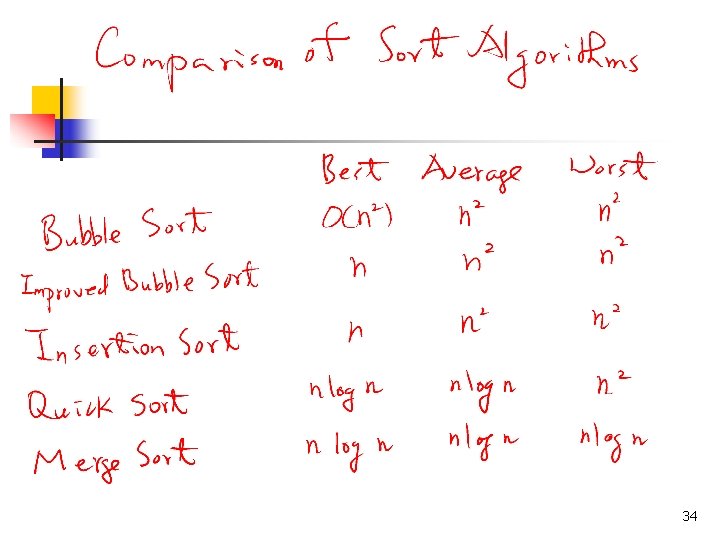 Comparison of Sort Algorithms
Best Average Worst
Bubble Sort O(n²) n² n²
Improved Bubble Sort n n² n²
Insertion Sort n n² n²
Quick Sort n log n n log n n²
Merge Sort n log n n log n n log n
34